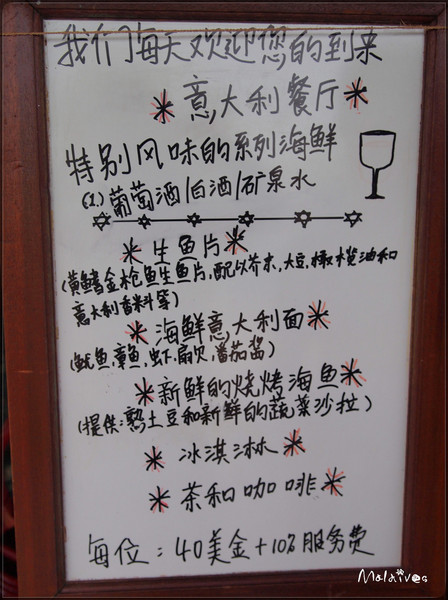 我们每天欢迎您的到来
意大利餐厅
特别风味的系列海鲜
(1.)葡萄酒/白酒/矿泉水
生鱼片
(黄鳍金枪鱼生鱼片,配以芥末,大豆,橄榄油和
意大利香料等)
海鲜意大利面
(鱿鱼,章鱼,虾,扇贝,番茄酱)
新鲜的烧烤海鱼
(提供:熟土豆和新鲜的蔬菜沙拉)
冰淇淋
茶和咖啡
每位:40美金+10%服务费
Maldives